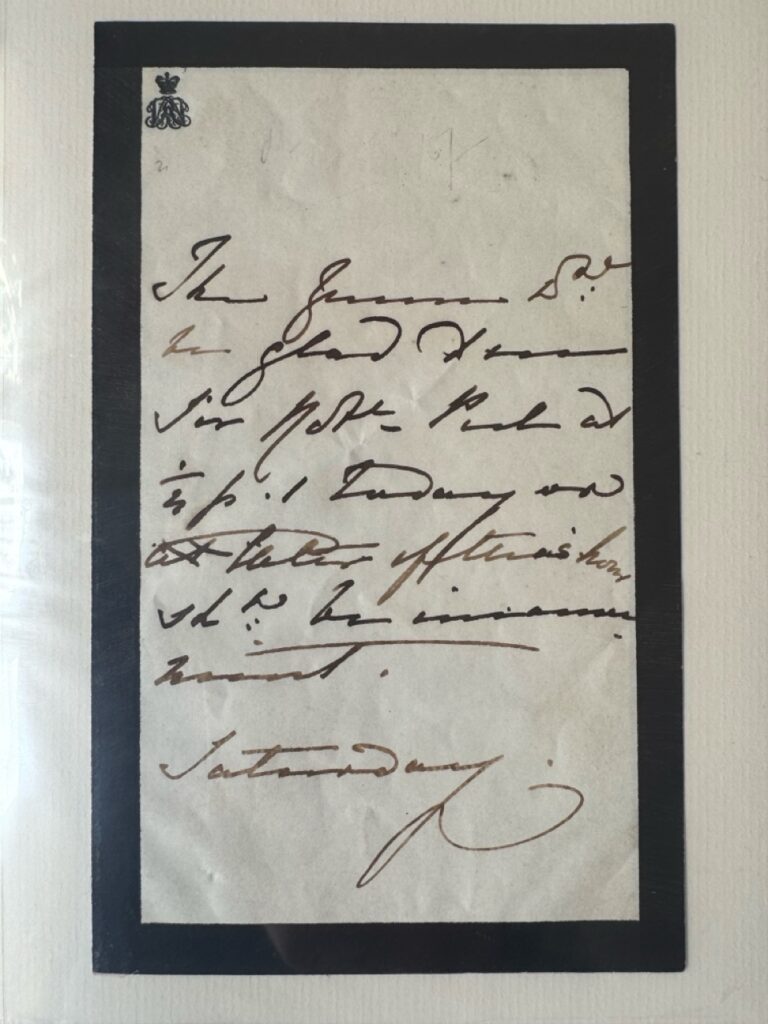 The Queen wd
be glad to see
Sir Robt Peel at
½ p. 1 today or
at later if this hour
shd be inconve
nient.
Saturday.